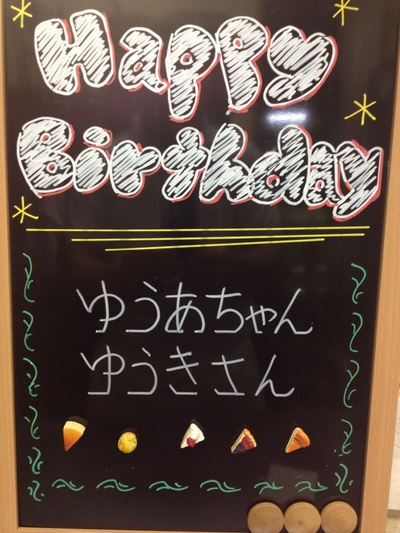 Happy
Birthday
ゆうあちゃん
ゆうきさん